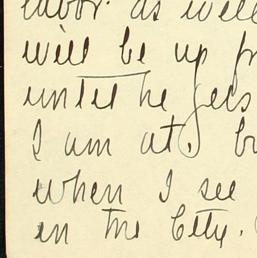 labor. as well
will be up fr
until he gets
I am at. bu
when I see
in the City.